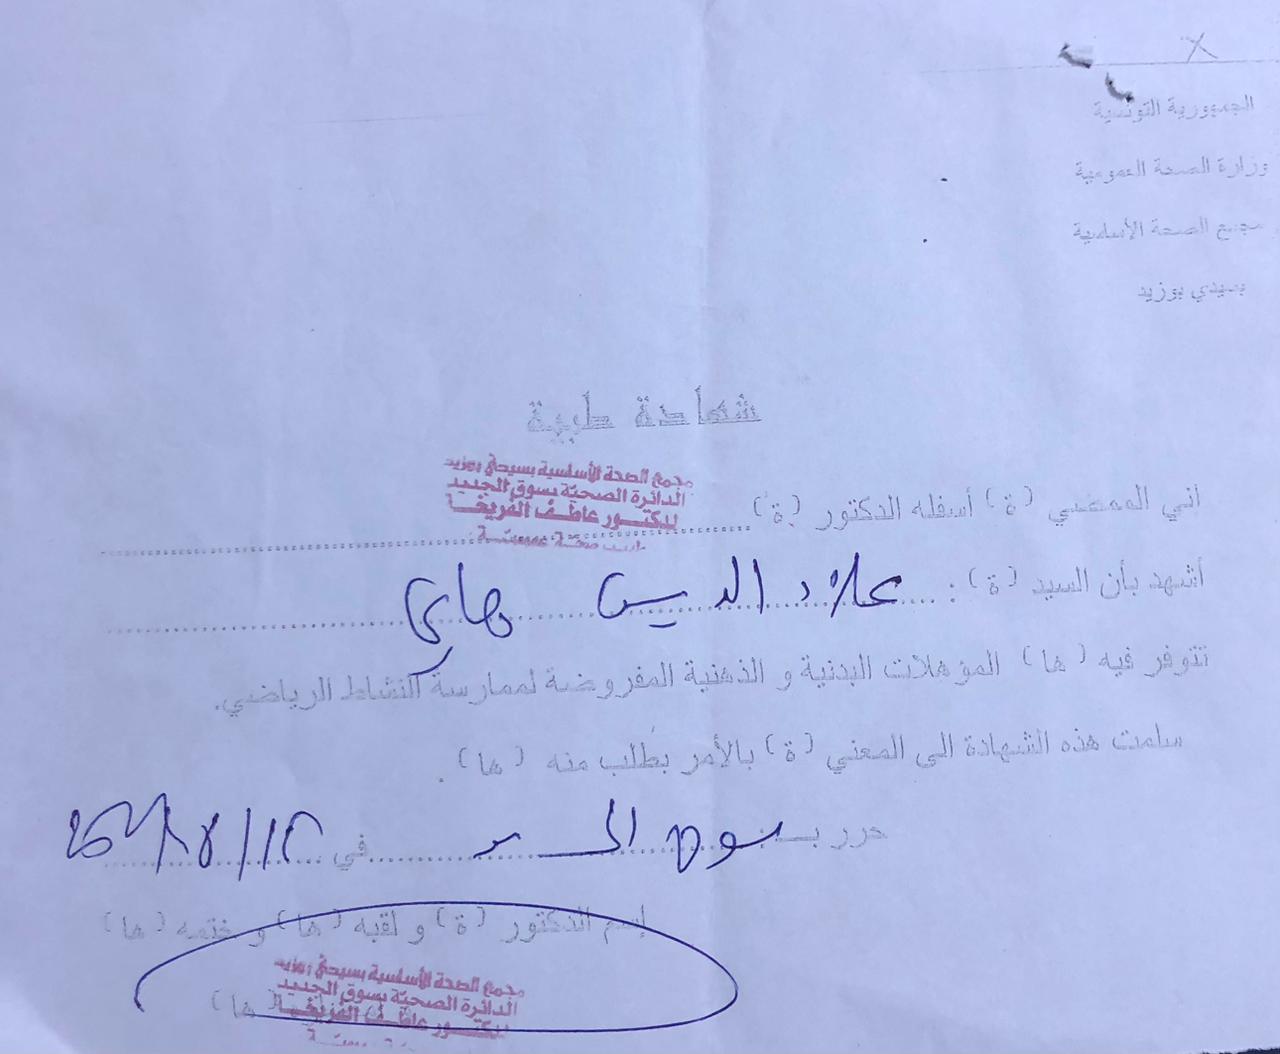 الجمهورية التونسية
وزارة الصحة العمومية
مجمع الصحة الأساسية
بسيدي بوزيد
شهادة طبية
مجمع الصحة الأساسية بسيدي بوزيد
الدائرة الصحية بسوق الجديد
للدكتور عاطف
إني الممضي (ة) أسفله الدكتور (ة)
أشهد بأن السيد (ة) : علاء الدين
تتوفر فيه (ها) المؤهلات البدنية و الذهنية المفروضة لممارسة النشاط الرياضي.
سلمت هذه الشهادة الى المعني (ة) بالأمر بطلب منه (ها) .
حرر بـ سوق الجديد في
إسم الدكتور (ة) و لقبه (ها) و ختمه (ها)
مجمع الصحة الأساسية بسيدي بوزيد
الدائرة الصحية بسوق الجديد
للدكتور عاطف
(ها)